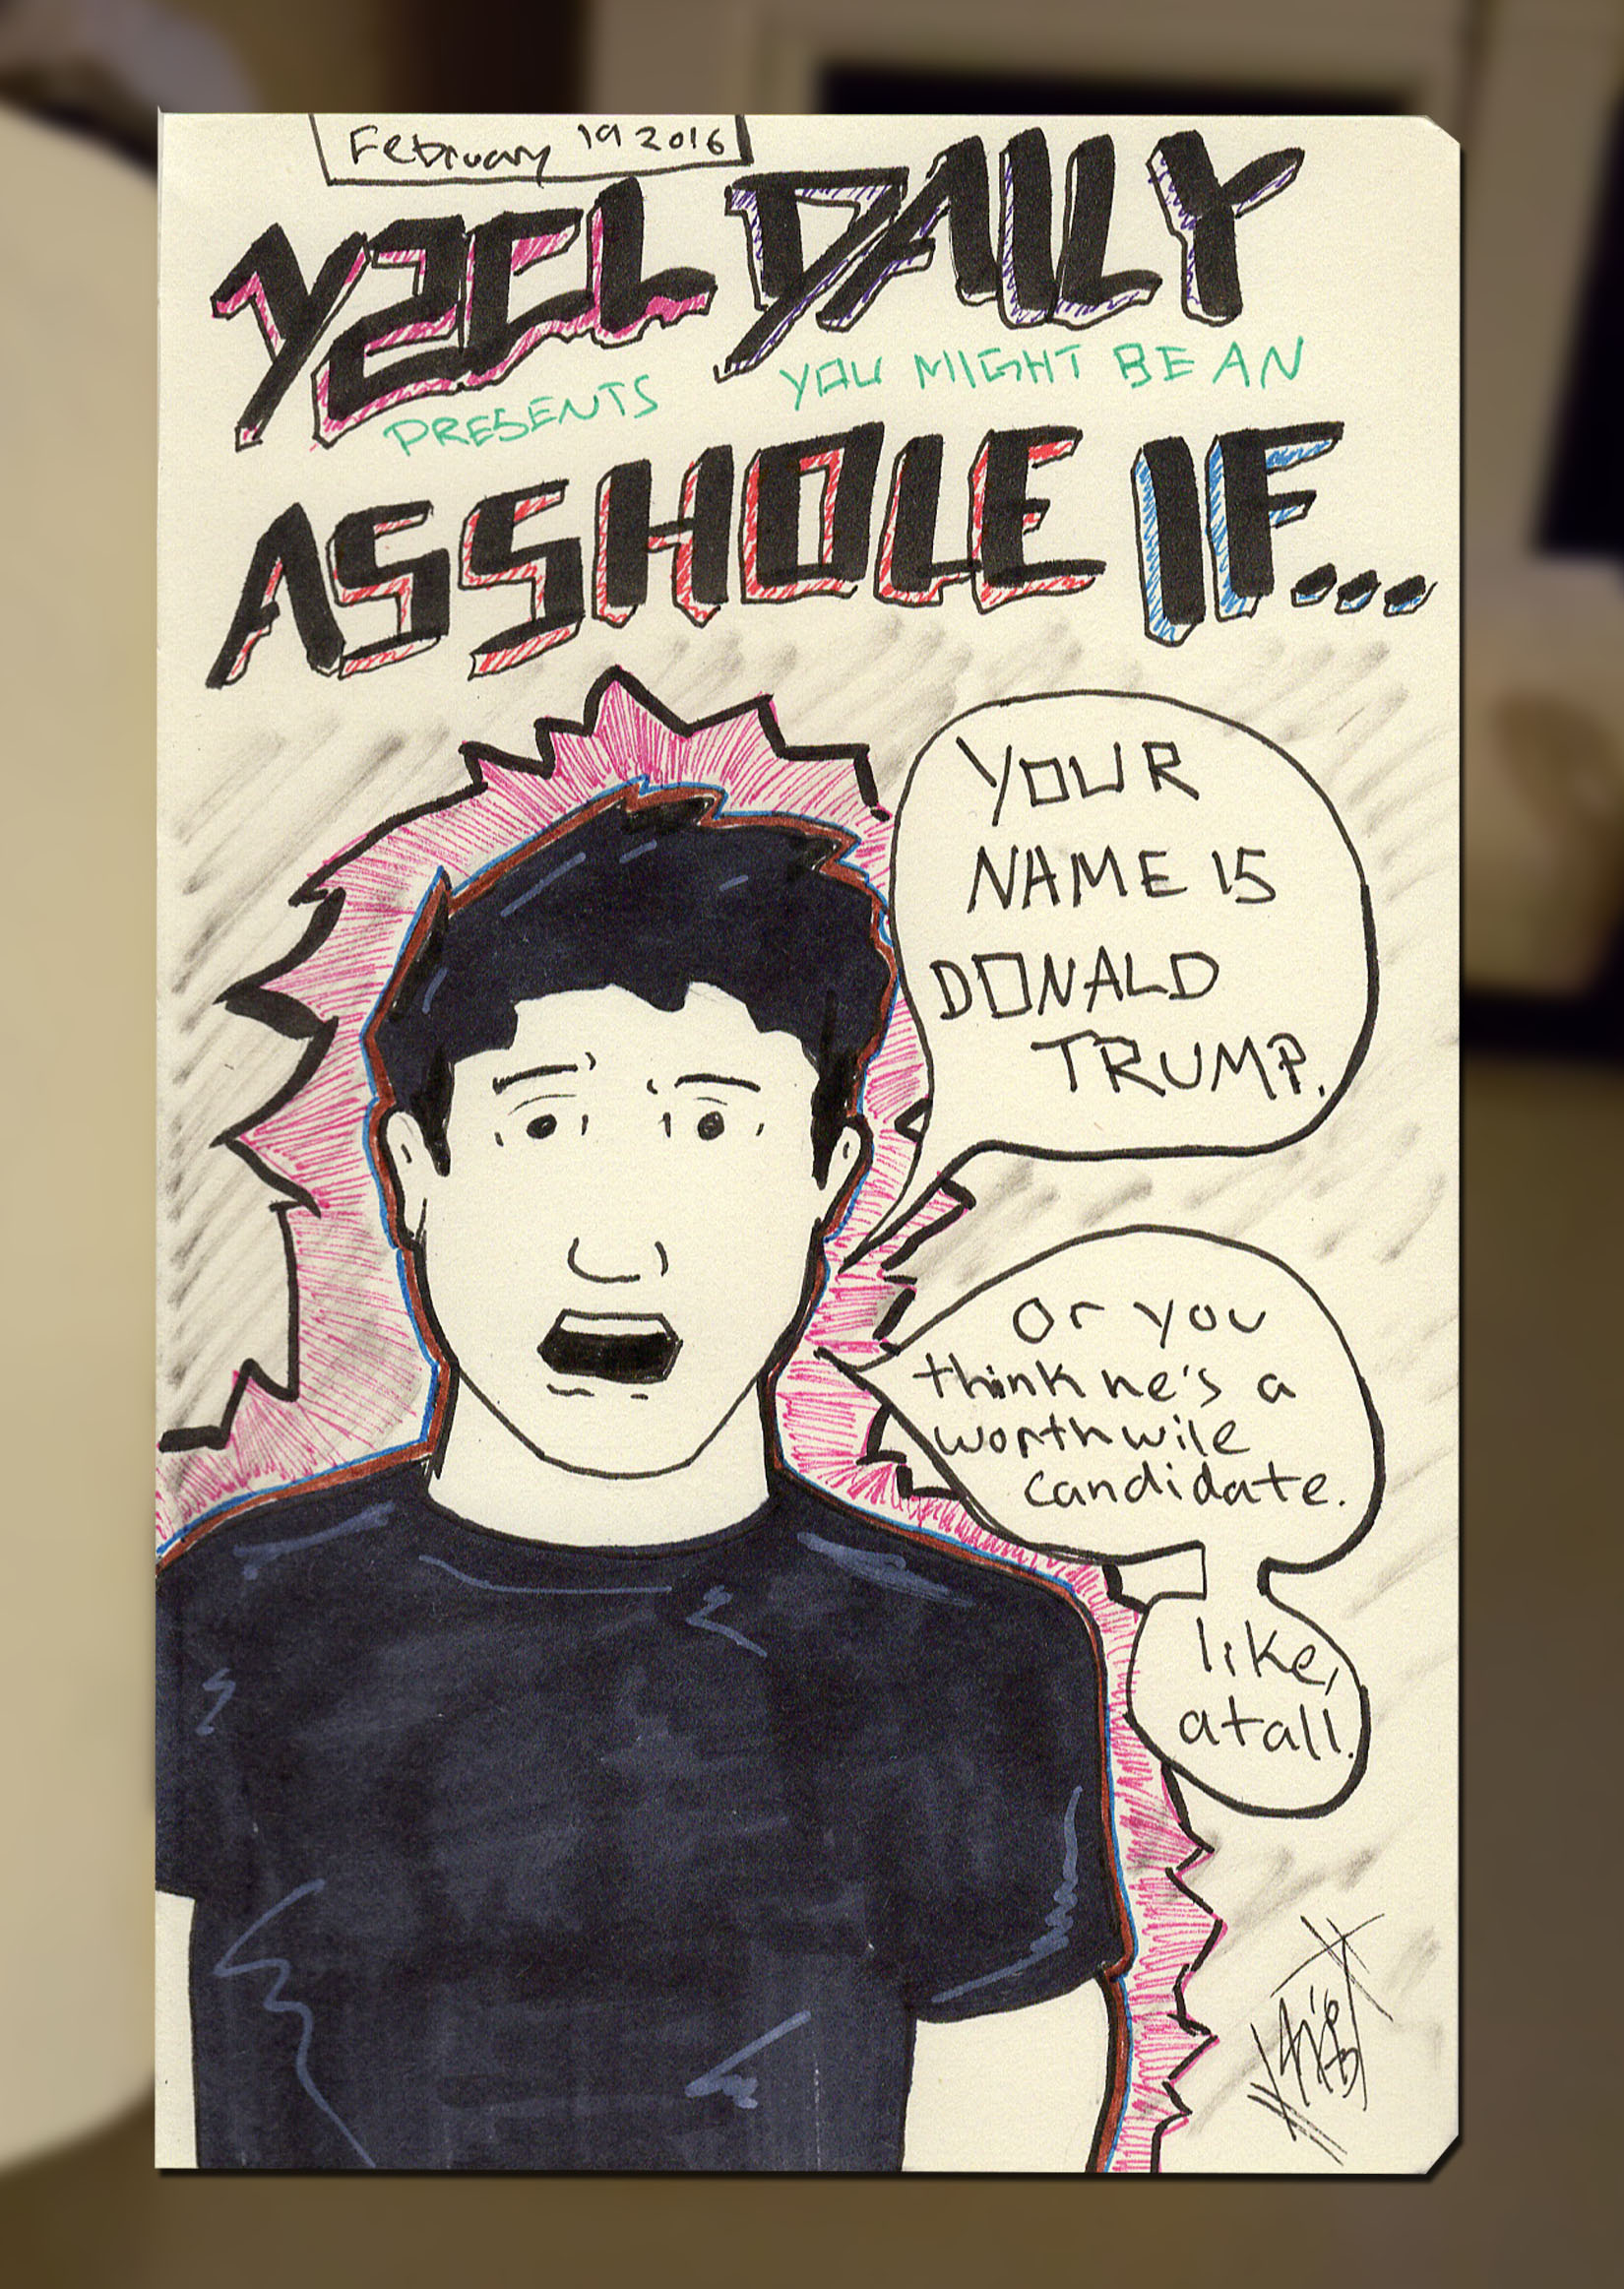 February 19 2016
YZCL DAILY
PRESENTS YOU MIGHT BE AN
ASSHOLE IF...
YOUR
NAME IS
DONALD
TRUMP.
Or you
think he's a
worthwile
candidate.
like,
at all.